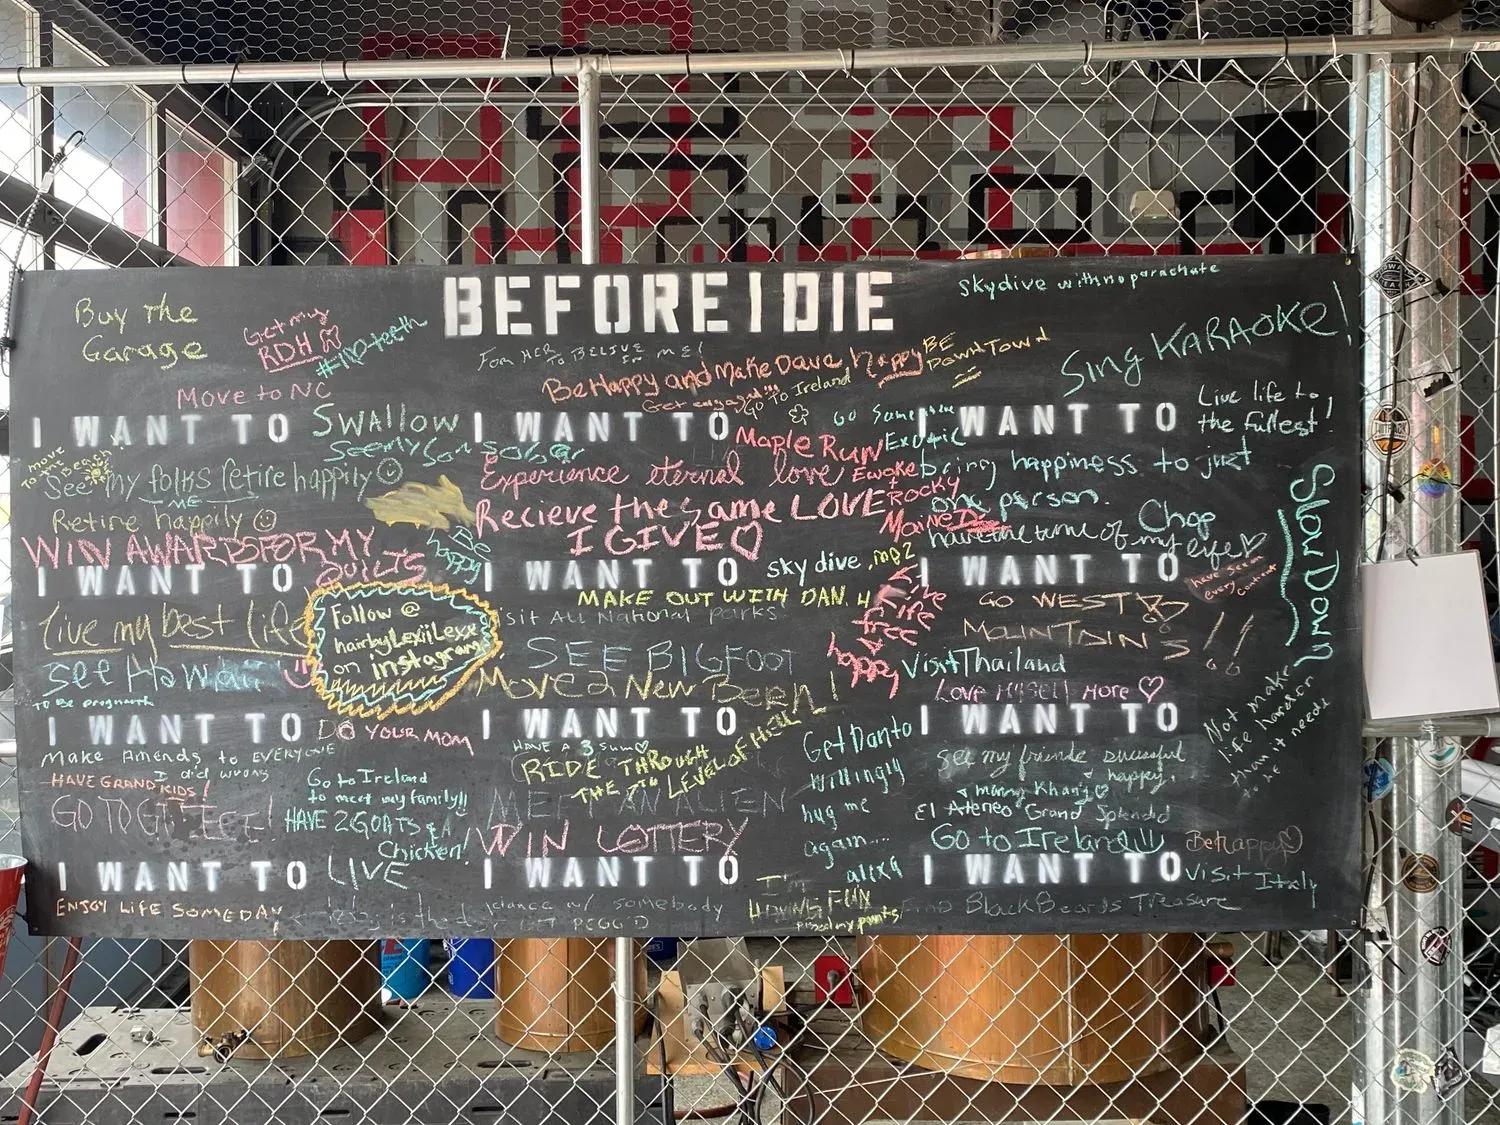 BEFORE I DIE
skydive with no parachute
Buy the
Garage
Get my
RDH
#1 teeth
FOR HER TO BELIVE IN ME!
Be Happy and Make Dave happy
BE
DOWNTOWN
Sing KARAOKE!
Move to NC
Get engaged!!!
GO TO Ireland
Live life to
the fullest!
I WANT TO SWALLOW
I WANT TO
Go Somewhere
Exotic
I WANT TO
Maple Run
move
to the
Beach!
See my folks retire happily
Experience eternal love
Ewoke
+
ROCKY
bring happiness to just
one person.
ME
Retire happily
Recieve the same LOVE
I GIVE
Chop
have the time of my life
Slow Down
WIN AWARDS FOR MY
QUILTS
Be
happy
I WANT TO
I WANT TO
sky dive
I WANT TO
have seen
every
MAKE OUT WITH DAN. H
Live
Life
free
happy
GO WEST
MOUNTAINS!!
Live my best life
Follow @
hairbyLexiiLexx
on instagram
visit All National parks
SEE BIGFOOT
Move 2 New Bern!
Visit Thailand
LOVE MYSELF MORE
see Hawaii
TO Be pregnant
I WANT TO DO YOUR MOM
I WANT TO
I WANT TO
Not make
life harder
than it needs
to be
Make Amends to EVERYONE
I did wrong
HAVE GRANDKIDS!
HAVE A 3 sum
RIDE THROUGH
THE 7TH LEVEL OF HELL
Get Danto
willingly
hug me
again...
alixa
see my friends successful
& happy,
& marry Khang
El Ateneo Grand Splendid
Go to Ireland
to meet my family!!
HAVE 2 GOATS & A
Chicken!
MEET AN ALIEN
WIN LOTTERY
Go to Ireland!!!
Be Happy
I WANT TO LIVE
I WANT TO
I WANT TO
visit Italy
ENJOY LIFE SOMEDAY
dance w/ somebody
GET PEGG'D
I'm
HAVING FUN
Find BlackBeards Treasure